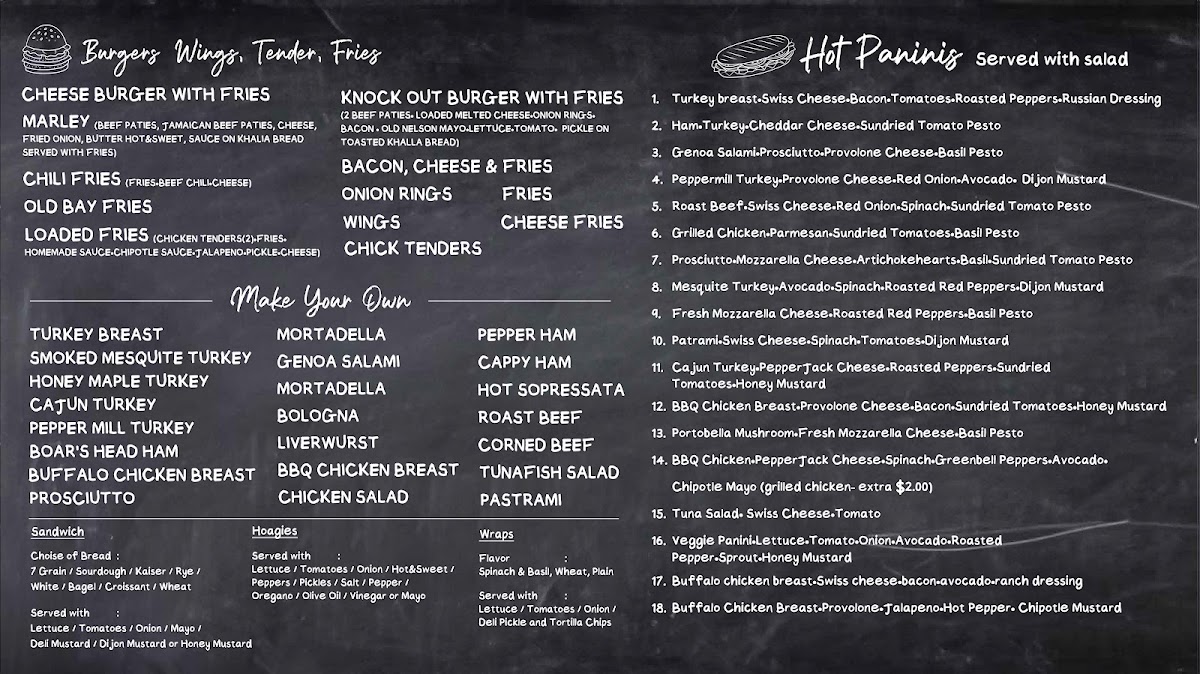 Burgers Wings, Tender, Fries
CHEESE BURGER WITH FRIES
MARLEY (BEEF PATIES, JAMAICAN BEEF PATIES, CHEESE,
FRIED ONION, BUTTER HOT&SWEET, SAUCE ON KHALIA BREAD
SERVED WITH FRIES)
CHILI FRIES (FRIES•BEEF CHILI•CHEESE)
OLD BAY FRIES
LOADED FRIES (CHICKEN TENDERS(2)•FRIES•
HOMEMADE SAUCE•CHIPOTLE SAUCE•JALAPENO•PICKLE•CHEESE)
KNOCK OUT BURGER WITH FRIES
(2 BEEF PATIES• LOADED MELTED CHEESE•ONION RINGS•
BACON • OLD NELSON MAYO•LETTUCE•TOMATO• PICKLE ON
TOASTED KHALLA BREAD)
BACON, CHEESE & FRIES
ONION RINGS FRIES
WINGS CHEESE FRIES
CHICK TENDERS
Make Your Own
TURKEY BREAST
SMOKED MESQUITE TURKEY
HONEY MAPLE TURKEY
CAJUN TURKEY
PEPPER MILL TURKEY
BOAR'S HEAD HAM
BUFFALO CHICKEN BREAST
PROSCIUTTO
MORTADELLA
GENOA SALAMI
MORTADELLA
BOLOGNA
LIVERWURST
BBQ CHICKEN BREAST
CHICKEN SALAD
PEPPER HAM
CAPPY HAM
HOT SOPRESSATA
ROAST BEEF
CORNED BEEF
TUNAFISH SALAD
PASTRAMI
Sandwich
Choise of Bread :
7 Grain / Sourdough / Kaiser / Rye /
White / Bagel / Croissant / Wheat
Served with :
Lettuce / Tomatoes / Onion / Mayo /
Deli Mustard / Dijon Mustard or Honey Mustard
Hoagies
Served with :
Lettuce / Tomatoes / Onion / Hot&Sweet /
Peppers / Pickles / Salt / Pepper /
Oregano / Olive Oil / Vinegar or Mayo
Wraps
Flavor :
Spinach & Basil, Wheat, Plain
Served with :
Lettuce / Tomatoes / Onion /
Deli Pickle and Tortilla Chips
Hot Paninis Served with salad
1. Turkey breast•Swiss Cheese•Bacon•Tomatoes•Roasted Peppers•Russian Dressing
2. Ham•Turkey•Cheddar Cheese•Sundried Tomato Pesto
3. Genoa Salami•Prosciutto•Provolone Cheese•Basil Pesto
4. Peppermill Turkey•Provolone Cheese•Red Onion•Avocado• Dijon Mustard
5. Roast Beef•Swiss Cheese•Red Onion•Spinach•Sundried Tomato Pesto
6. Grilled Chicken•Parmesan•Sundried Tomatoes•Basil Pesto
7. Prosciutto•Mozzarella Cheese•Artichokehearts•Basil•Sundried Tomato Pesto
8. Mesquite Turkey•Avocado•Spinach•Roasted Red Peppers•Dijon Mustard
9. Fresh Mozzarella Cheese•Roasted Red Peppers•Basil Pesto
10. Patrami•Swiss Cheese•Spinach•Tomatoes•Dijon Mustard
11. Cajun Turkey•PepperJack Cheese•Roasted Peppers•Sundried
Tomatoes•Honey Mustard
12. BBQ Chicken Breast•Provolone Cheese•Bacon•Sundried Tomatoes•Honey Mustard
13. Portobella Mushroom•Fresh Mozzarella Cheese•Basil Pesto
14. BBQ Chicken•PepperJack Cheese•Spinach•Greenbell Peppers•Avocado•
Chipotle Mayo (grilled chicken- extra $2.00)
15. Tuna Salad• Swiss Cheese•Tomato
16. Veggie Panini•Lettuce•Tomato•Onion•Avocado•Roasted
Pepper•Sprout•Honey Mustard
17. Buffalo chicken breast•Swiss cheese•bacon•avocado•ranch dressing
18. Buffalo Chicken Breast•Provolone•Jalapeno•Hot Pepper• Chipotle Mustard